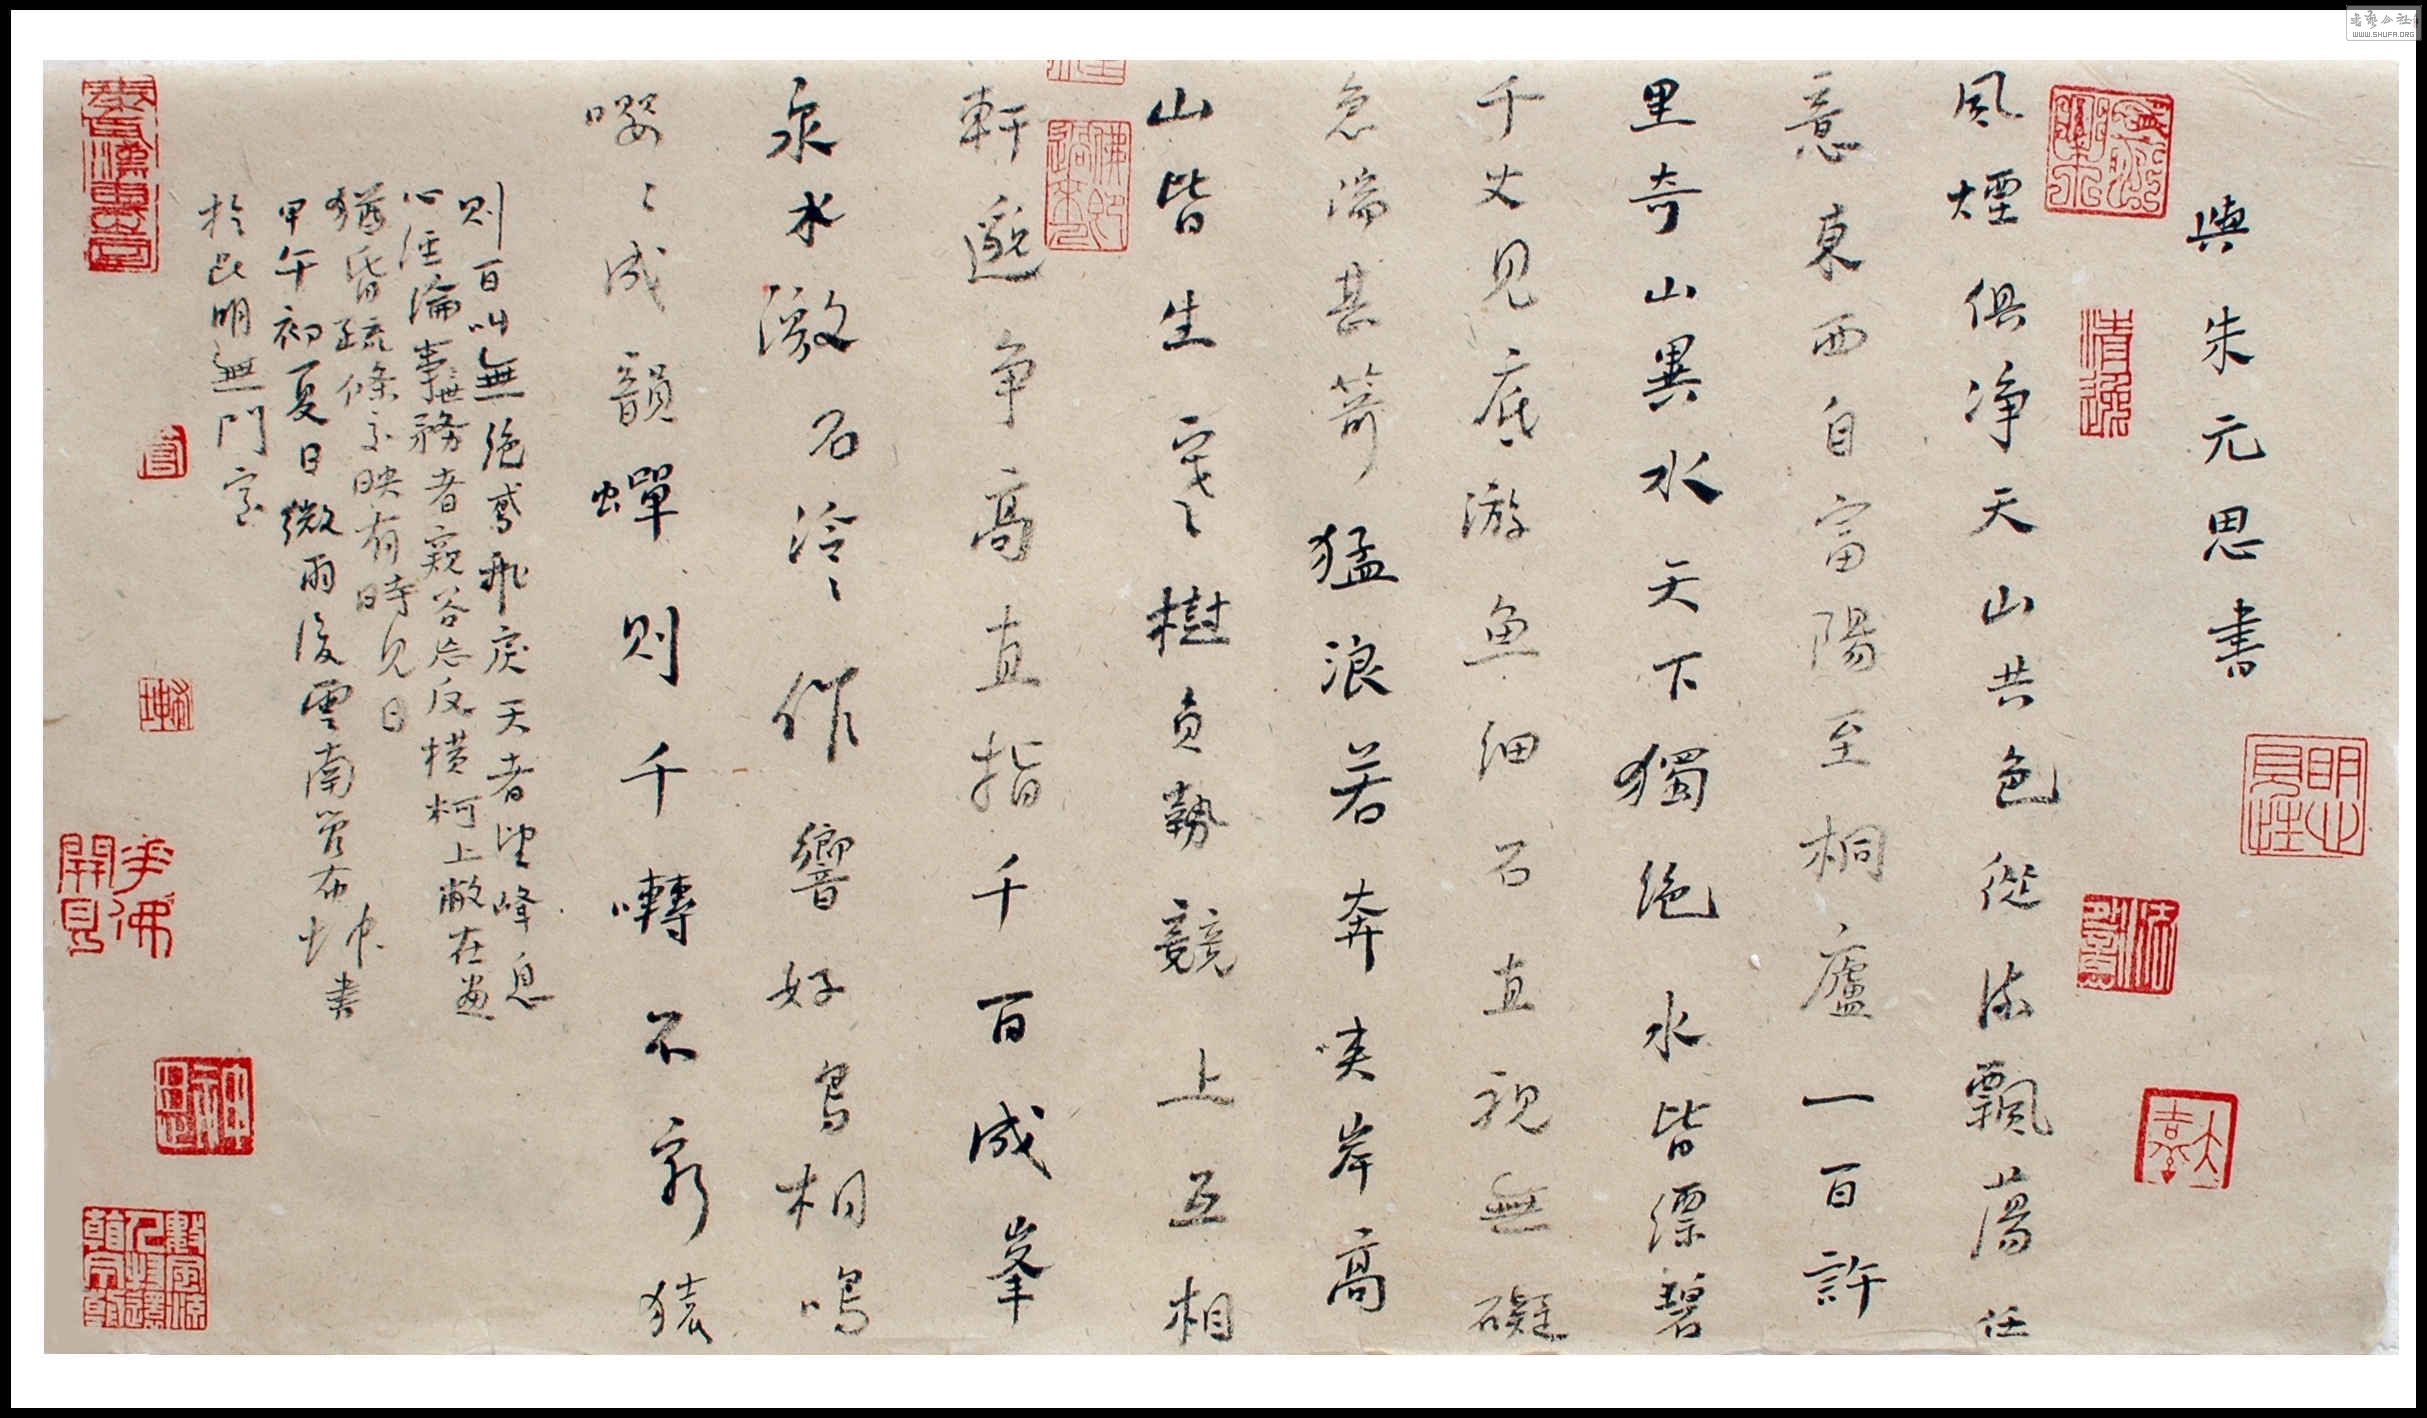 與朱元思書
風煙俱净天山共色從流飄蕩任
意東西自富陽至桐廬一百許
里奇山異水天下獨絕水皆縹碧
千丈見底游魚細石直視無礙
急湍甚箭猛浪若奔夾岸高
山皆生寒〻樹負勢競上互相
軒邈争高直指千百成峯
泉水激石泠〻作響好鳥相鳴
嚶〻成韻蟬則千囀不窮猿
則百叫無絕鳶飛戾天者望峰息
心經綸事務者窺谷忘反橫柯上蔽在晝
猶昏疏條交映有時見日
甲午初夏日微雨後雲南管布坤書
於昆明無門窟
明心見性
清逸
書藝公社
WWW.SHUFA.ORG